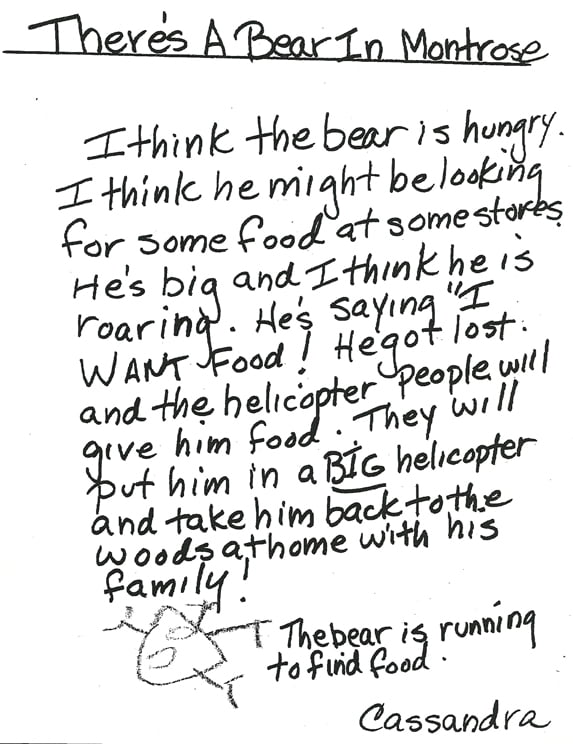 There's A Bear In Montrose
I think the bear is hungry.
I think he might be looking
for some food at some stores
He's big and I think he is
roaring. He's saying "I
WANT Food! He got lost.
and the helicopter people will
give him food. They will
put him in a BIG helicopter
and take him back to the
woods at home with his
family!
The bear is running
to find food.
Cassandra